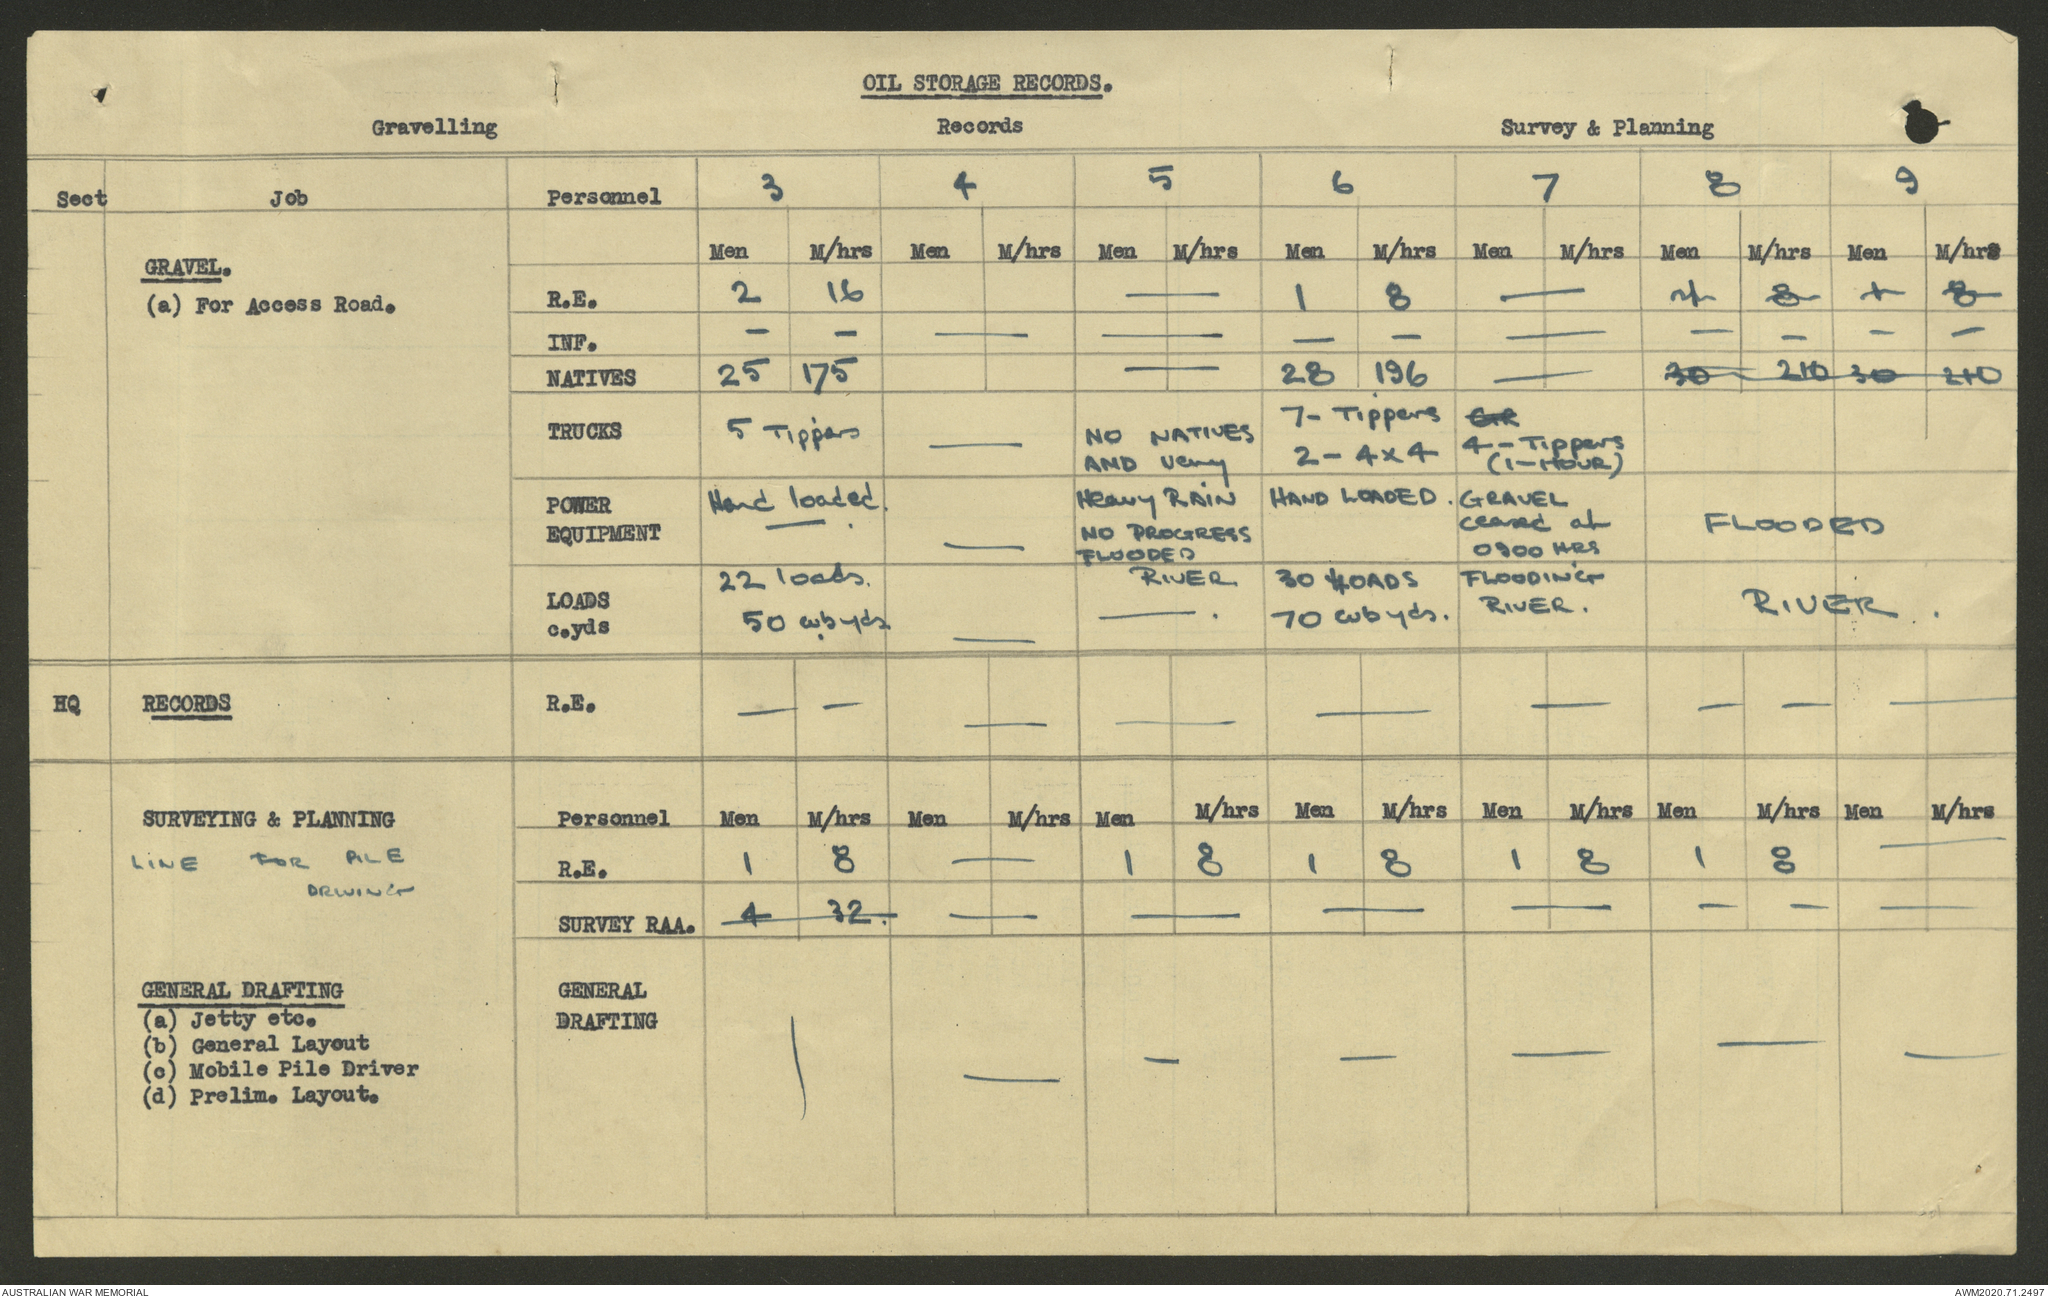 OIL STORAGE RECORDS.
Gravelling Records Survey & Planning
Sect Job Personnel 3 4 5 6 7 8 9
Men M/hrs Men M/hrs Men M/hrs Men M/hrs Men M/hrs Men M/hrs Men M/hrs
GRAVEL.
(a) For Access Road.
R.E. 2 16 — 1 8 — 1 8 1 8
INF. – – — — — – — – – – –
NATIVES 25 175 — 28 196 — 30 210 30 210
TRUCKS 5 Tippers — NO NATIVES AND Very 7- Tippers 2 - 4x4 4 - Tippers (1-HOUR)
POWER EQUIPMENT Hand loaded. — — Heavy RAIN NO PROGRESS FLOODED HAND LOADED. GRAVEL ceased at 0900 HRS FLOODED
LOADS c.yds 22 loads. 50 cub yds. — RIVER — . 30 LOADS 70 cub yds. FLOODING RIVER. RIVER.
HQ RECORDS R.E. — – — — — — – – —
SURVEYING & PLANNING Personnel Men M/hrs Men M/hrs Men M/hrs Men M/hrs Men M/hrs Men M/hrs Men M/hrs
LINE FOR PILE
DRIVING
R.E. 1 8 — 1 8 1 8 1 8 1 8 —
SURVEY RAA. 4 32. — — — — – – —
GENERAL DRAFTING GENERAL
(a) Jetty etc. DRAFTING
(b) General Layout
(c) Mobile Pile Driver — – — — — —
(d) Prelim. Layout.
AUSTRALIAN WAR MEMORIAL AWM2020.71.2497